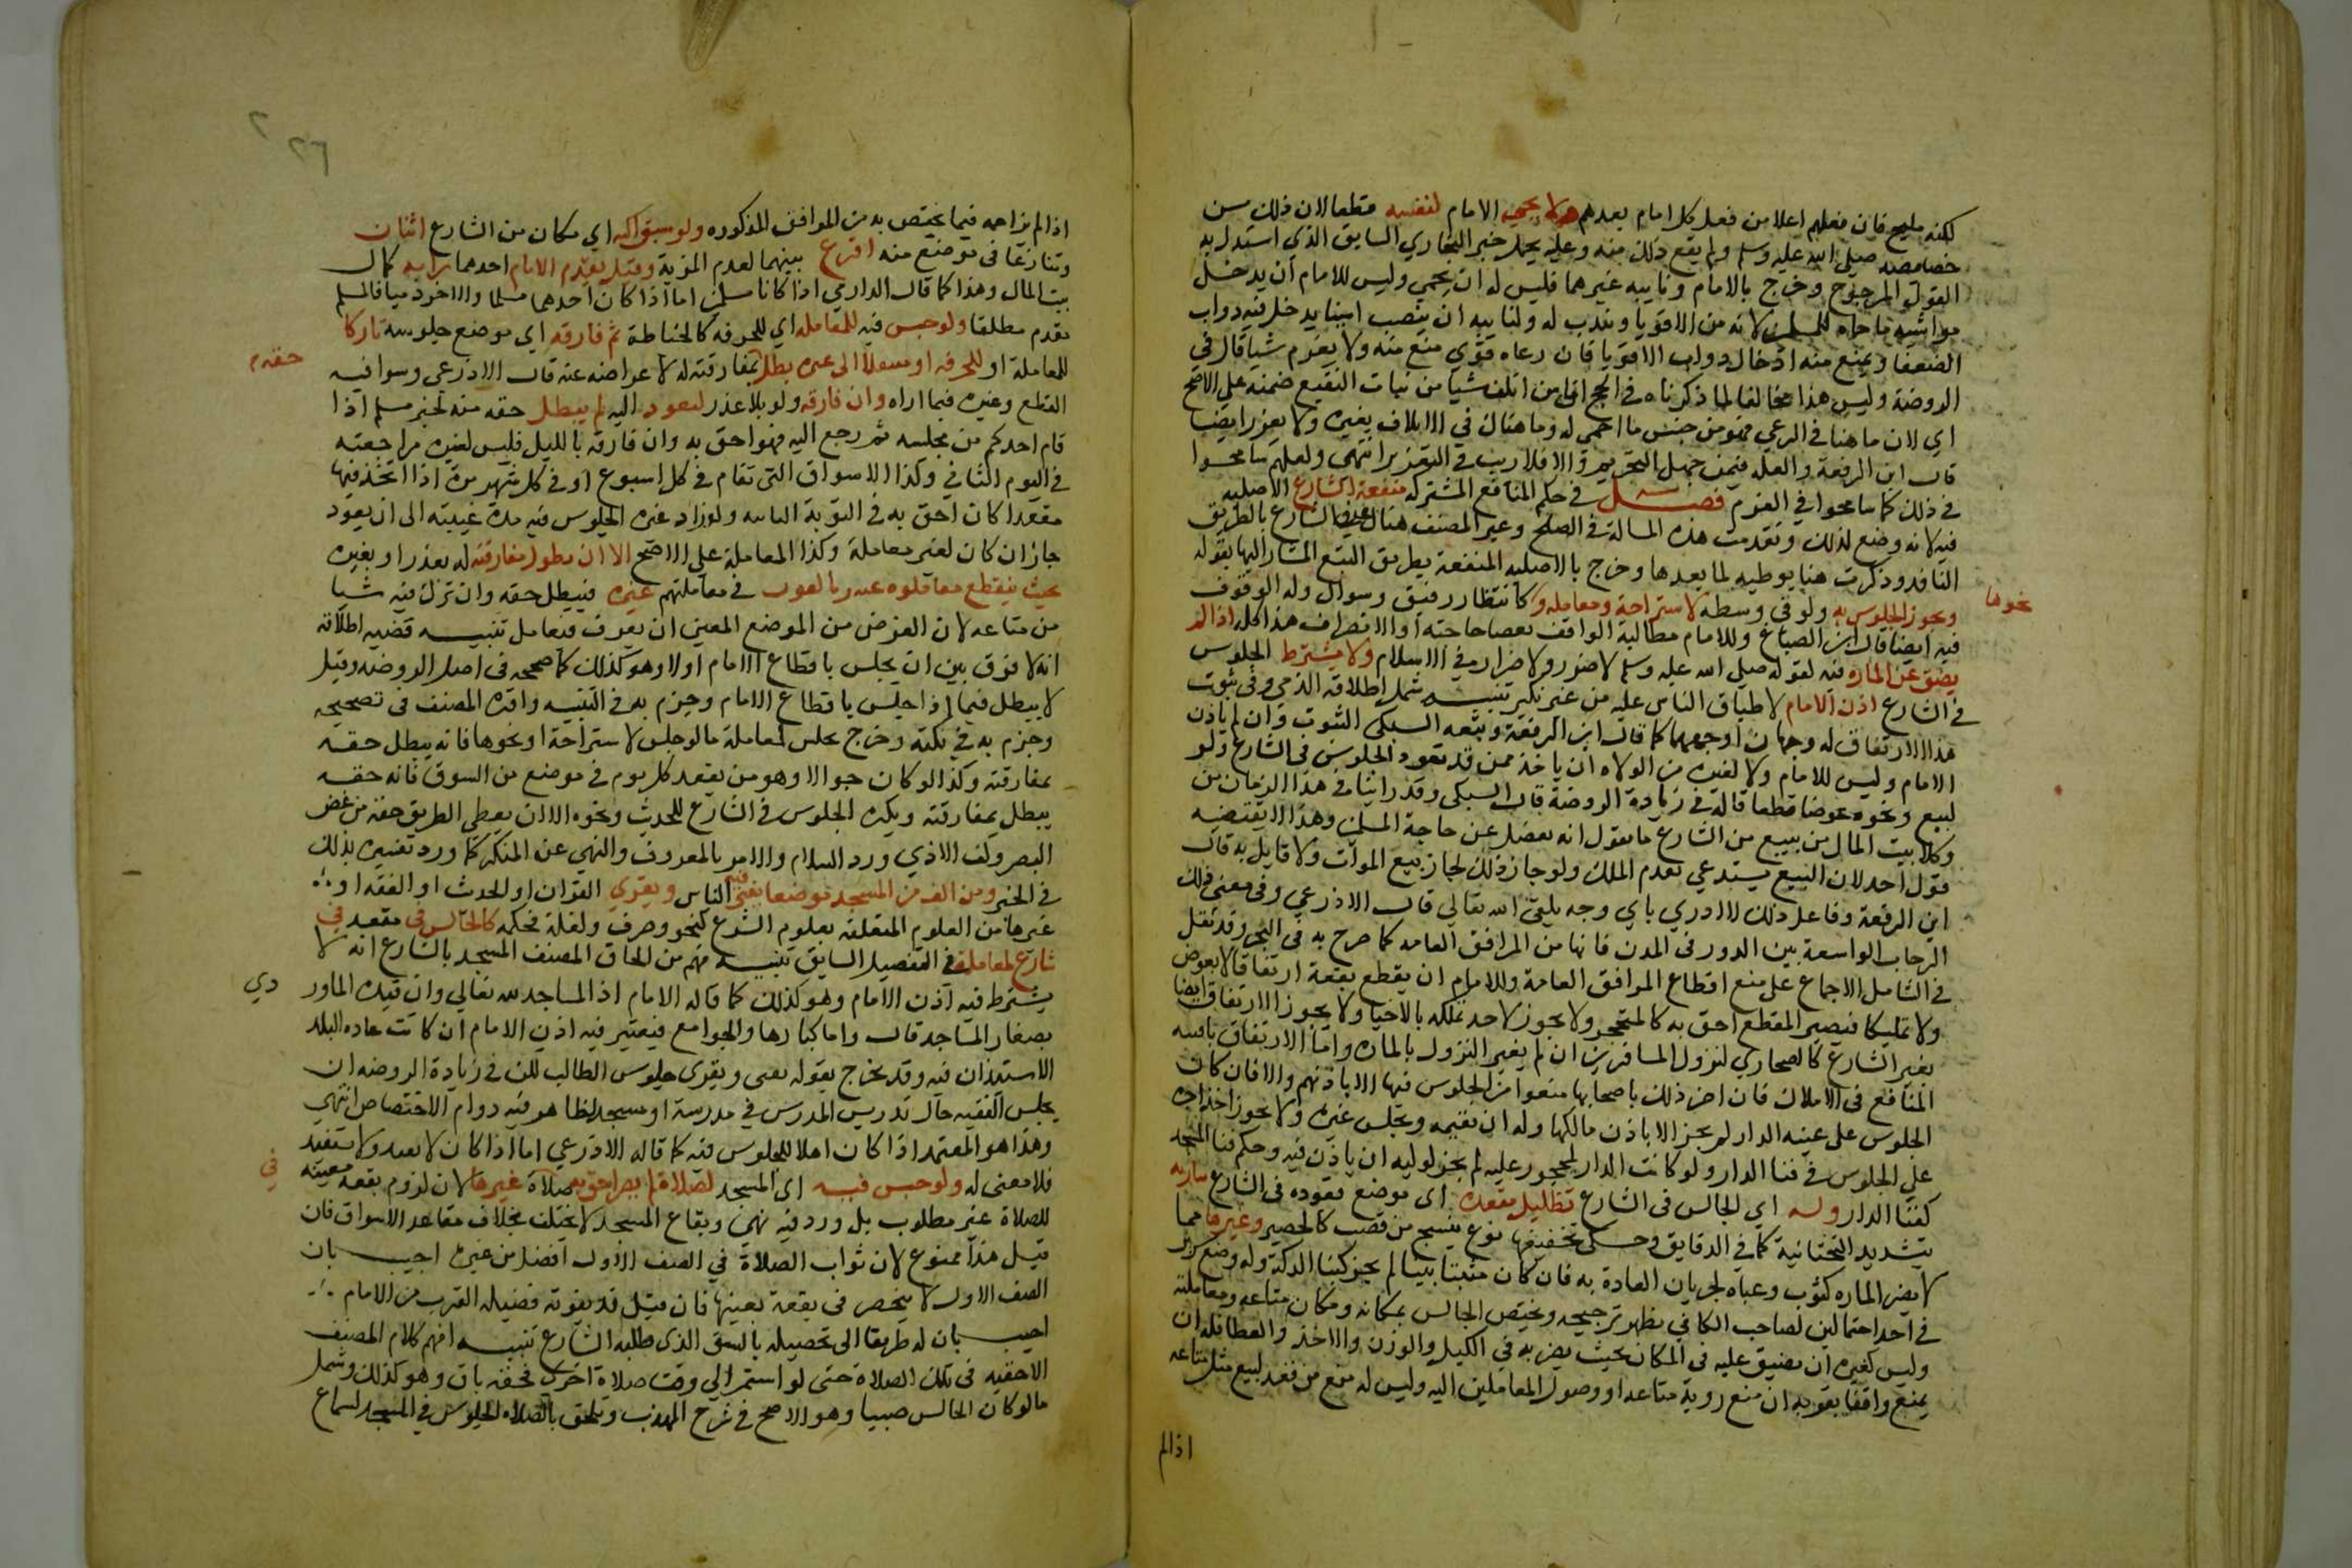 لكنه مليح فان فعلهم اعلا من فعل كل امام بعدهم ولا يحمي الامام لنفسه قطعا لان ذلك من
خصائصه صلي الله عليه وسلم ولم يقع ذلك منه وعليه يحمل خبر البخاري السابق الذي استدل به
القول المرجوح وخرج بالامام ونايبه غيرهما فليس له ان يحمي وليس للامام ان يدخل
مواشيه ما حماه للمسلمين لانه من الاقويا ويندب له ولنايبه ان ينصب امينا يدخل فيه دواب
الضعفا ويمنع منه ادخال دواب الاقويا فان رعاه قوي منع منه ولا يغرم شيا قال في
الروضة وليس هذا مخالفا لما ذكرناه في الحج ان من اتلف شيا من نبات النقيع ضمنه علي الاصح
اي لان ما هنا في الرعي فهو من جنس ما احمي له وما هناك في الاتلاف بغيره ولا يعزر ايضا
قال ابن الرفعة ولعله فيمن جهل التحريم والا فلا ريب في التعزير انتهي ولعلهم سامحوا
في ذلك كما سامحوا في الغرم فصل في حكم المنافع المشتركه منفعة الشارع الاصليه
فيه لانه وضع لذلك وتقدمت هذه المسالة في الصلح وعبر المصنف هناك عن الشارع بالطريق
النافد وذكرت هنا توطيه لما بعدها وخرج بالاصليه المنفعة بطريق التبع المشار اليها بقوله
ويجوز الجلوس به ولو في وسطه لاستراحة ومعامله و كانتظار رفيق وسوال وله الوقوف
نحوها
فيه ايضا قال ابن الصباغ وللامام مطالبة الواقف بقضا حاجته او الانصراف هذا كله اذا لم
يضيق عن المارة فيه لقوله صلي الله عليه وسلم لا ضرر ولا ضرار في الاسلام ولا يشترط الجلوس
في الشارع اذن الامام لاطباق الناس عليه من غير نكير تنبيه شمل اطلاقه الذمي وفي ثبوت
هذا الارتفاق له وجهان اوجههما كما قال ابن الرفعة وتبعه السبكي الثبوت وان لم ياذن
الامام وليس للامام ولا لغيره من الولاه ان ياخذ ممن قد يقعد الجلوس في الشارع ولو
لبيع ونحوه عوضا قطعا قاله في زيادة الروضة قال السبكي وقد راينا في هذا الزمان من
وكلا بيت المال من يبيع من الشارع ما يقول انه يفضل عن حاجة المسلمين وهذا لا يقتضيه
قول احد لان البيع يستدعي تقدم الملك ولو جاز ذلك لجاز بيع الموات ولا قايل به قال
ابن الرفعة وفاعل ذلك لا ادري باي وجه يلقي الله تعالي قال الاذرعي وفي معني ذلك
الرحاب الواسعة بين الدور في المدن فانها من المرافق العامه كما صرح به في البحر وقد نقل
في الشامل الاجماع علي منع اقطاع المرافق العامة وللامام ان يقطع بقعة ارتفاقا لا بعوض
ولا تمليكا فيصير المقطع احق به كالمتحجر ولا يجوز لاحد تملكه بالاحيا ولا يجوز الارتفاق ايضا
بغير الشارع كالصحاري لنزول المسافرين ان لم يضر النزول بالماره واما الارتفاق بافنيه
المنافع في الاملاك فان اضر ذلك باصحابها منعوا من الجلوس فيها الا باذنهم والا فان كان
الجلوس علي عتبه الدار لم يجز الا باذن مالكها وله ان يقيمه ويجلس غيره ولا يجوز اخذ اجره
علي الجلوس في فنا الدار ولو كانت الدار لمحجور عليه لم يجز لوليه ان ياذن فيه وحكم فنا المسجد
كفنا الدار وله اي الجالس في الشارع تظليل مقعده اي موضع قعوده في الشارع بباريه
بتشديد التحتانية كما في الدقايق وحكي تخفيفها نوع ينسج من قصب كالحصير وغيرها مما
لا يضر الماره كثوب وعباه لجريان العادة به فان كان مثبتا ببنا لم يجز كبنا الدكة وله وضع سرير
في احد احتمالين لصاحب الكافي يظهر ترجيحه ويختص الجالس بمكانه ومكان متاعه ومعامليه
وليس لغيره ان يضيق عليه في المكان بحيث يضر به في الكيل والوزن والاخذ والعطا فله ان
يمنع واقفا بقربه ان منع روية متاعه او وصول المعاملين اليه وليس له منع من قعد لبيع مثل متاعه
اذا لم
٢٦
اذا لم يزاحمه فيما يختص به من المرافق المذكوره ولو سبق اليه اي مكان من الشارع اثنان
وتنازعا في موضع منه اقرع بينهما لعدم المزية وقيل يقدم الامام احدهما برايه كمال
بيت المال وهذا كما قال الدارمي اذا كانا مسلمين اما اذا كان احدهما مسلما والاخر ذميا فالمسلم
يقدم مطلقا ولو جلس فيه للمعامله اي للحرفه كالخياطة ثم فارقه اي موضع جلوسه تاركا
للمعاملة او للحرفه او منتقلا الي غيره بطل بمفارقته له لاعراضه عنه قال الاذرعي وسوا فيه
حقه
المقطع وغيره فيما اراه وان فارقه ولو بلا عذر ليعود اليه لم يبطل حقه منه لخبر مسلم اذا
قام احدكم من مجلسه ثم رجع اليه فهو احق به وان فارقه بالليل فليس لغيره مزاحمته
في اليوم الثاني وكذا الاسواق التي تقام في كل اسبوع او في كل شهر مرة اذا اتخذ فيها
مقعدا كان احق به في النوبة الثانيه ولو اراد غيره الجلوس فيه مدة غيبته الي ان يعود
جاز ان كان لغير معاملة وكذا المعاملة علي الاصح الا ان تطول مفارقته له بعذر او بغيره
بحيث ينقطع معاملوه عنه ويالفون في معاملتهم غيره فيبطل حقه وان ترك فيه شيا
من متاعه لان الغرض من الموضع المعين ان يعرف فيعامل تنبيه قضيه اطلاقه
انه لا فرق بين ان يجلس باقطاع الامام او لا وهو كذلك كما صححه في اصل الروضه وقيل
لا يبطل فيما اذا جلس باقطاع الامام وجزم به في التنبيه واقره المصنف في تصحيحه
وجزم به في نكته وخرج بجلس لمعاملة ما لو جلس لاستراحة او نحوها فانه يبطل حقه
بمفارقته وكذا لو كان جوالا وهو من يقعد كل يوم في موضع من السوق فانه حقه
يبطل بمفارقته ويكره الجلوس في الشارع للحديث ونحوه الا ان يعطي الطريق حقه من غض
البصر وكف الاذي ورد السلام والامر بالمعروف والنهي عن المنكر كما ورد تفسيره بذلك
في الخبر ومن الف من المسجد موضعا يفتي فيه الناس ويقري القران او الحديث او الفقه او
غيرها من العلوم المتعلقه بعلوم الشرع كنحو وصرف ولغة فحكمه كالجالس في مقعد في
شارع لمعاملة في التفصيل السابق تنبيه فهم من الحاق المصنف المسجد بالشارع انه لا
يشترط فيه اذن الامام وهو كذلك كما قاله الامام اذ المساجد لله تعالي وان قيده الماور
دي
بصغار المساجد قال واما كبارها والجوامع فيعتبر فيه اذن الامام ان كانت عاده البلد
الاستئذان فيه وقد يخرج بقوله يفتي ويقري جلوس الطالب لكن في زيادة الروضه ان
يجلس الفقيه حال تدريس المدرس في مدرسة او مسجد الظاهر فيه دوام الاختصاص انتهي
وهذا هو المعتمد اذا كان اهلا للجلوس فيه كما قاله الاذرعي اما اذا كان لا يفيد ولا يستفيد
فلا معني له ولو جلس فيه اي المسجد لصلاة لم يصر احق به صلاة غيرها لان لزوم بقعة معينه
في
للصلاة غير مطلوب بل ورد فيه نهي وبقاع المسجد لا تختلف بخلاف مقاعد الاسواق فان
قيل هذا ممنوع لان ثواب الصلاة في الصف الاول افضل من غيره اجيب بان
الصف الاول لا ينحصر في بقعة بعينها فان قيل قد يفوته فضيلة القرب من الامام
اجيب بان له طريقا الي تحصيله بالسبق الذي طلبه الشارع تنبيه افهم كلام المصنف
الاحقيه في تلك الصلاة حتي لو استمر الي وقت صلاة اخري فحقه باق وهو كذلك وشمل
ما لو كان الجالس صبيا وهو الاصح في شرح المهذب ويلحق بالصلاه الجلوس في المسجد لسماع